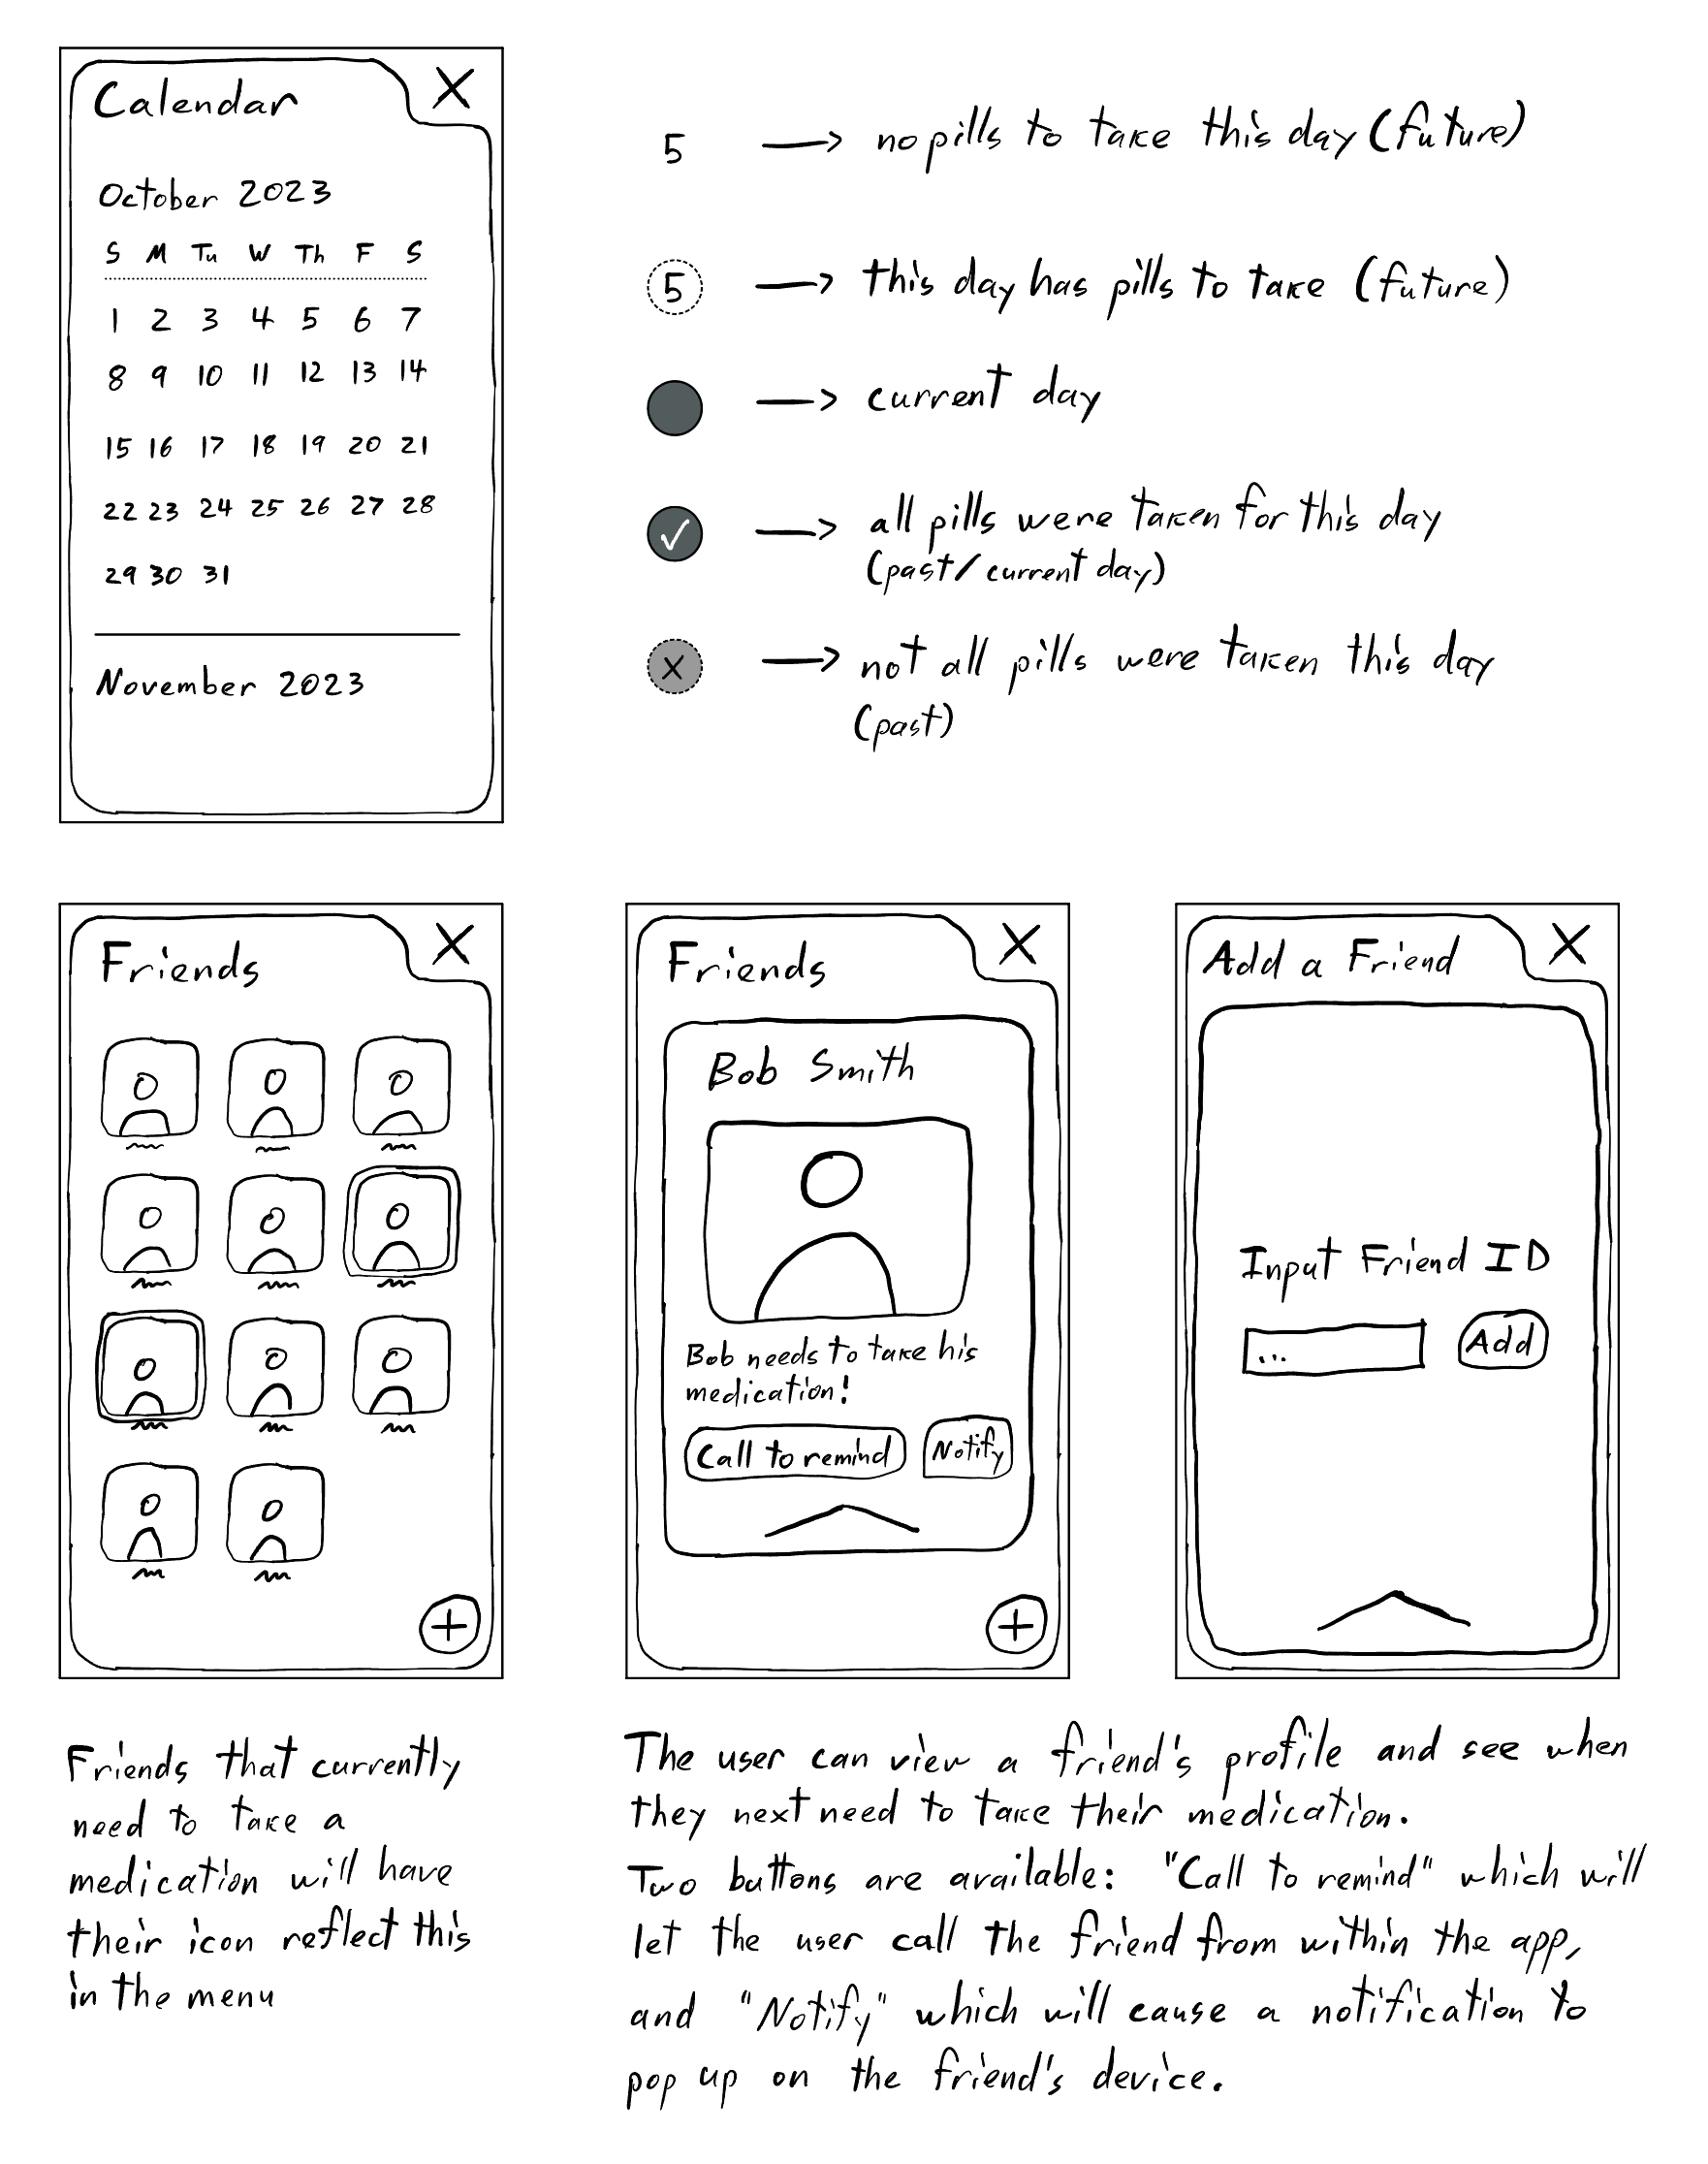 Calendar X
October 2023
S M Tu W Th F S
1 2 3 4 5 6 7
8 9 10 11 12 13 14
15 16 17 18 19 20 21
22 23 24 25 26 27 28
29 30 31
November 2023
5 → no pills to take this day (future)
5 → this day has pills to take (future)
→ current day
✓ → all pills were taken for this day
(past/current day)
X → not all pills were taken this day
(past)
Friends X
+
Friends X
Bob Smith
Bob needs to take his
medication!
Call to remind Notify
+
Add a Friend X
Input Friend ID
... Add
Friends that currently
need to take a
medication will have
their icon reflect this
in the menu
The user can view a friend's profile and see when
they next need to take their medication.
Two buttons are available: "Call to remind" which will
let the user call the friend from within the app,
and "Notify" which will cause a notification to
pop up on the friend's device.